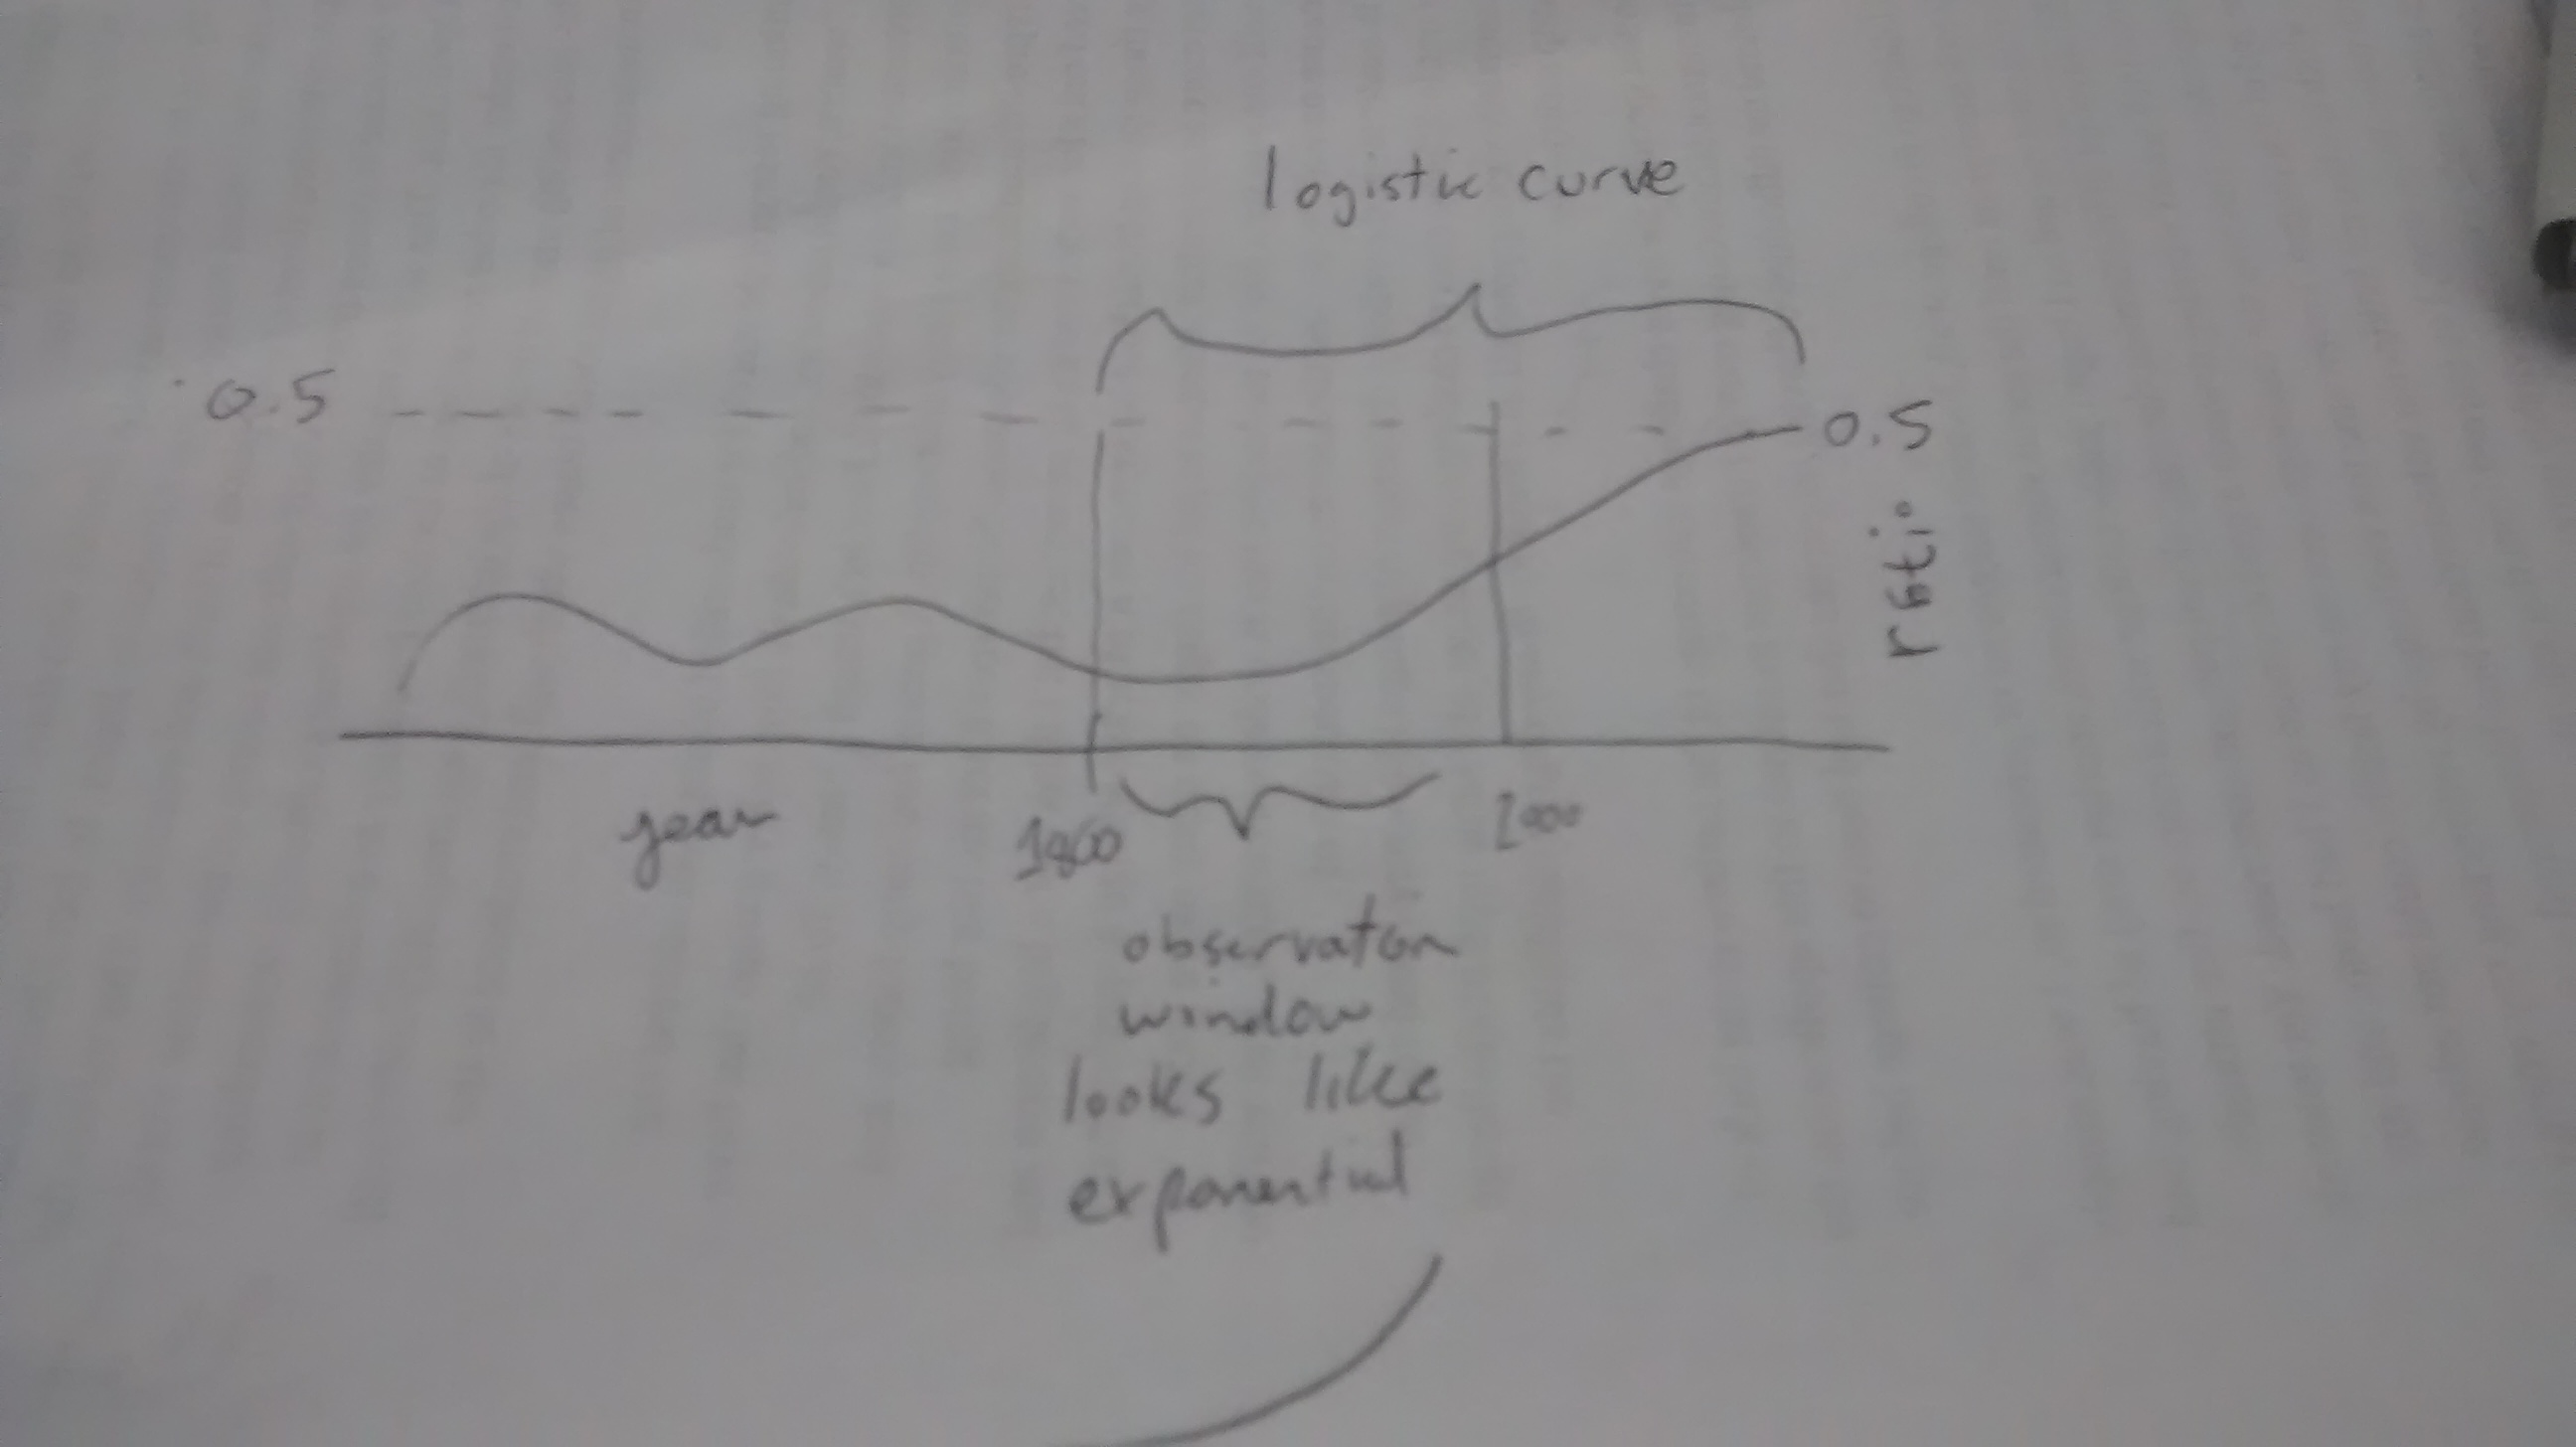 logistic curve
0.5
0.5
ratio
year
2000
observation
window
looks like
exponential